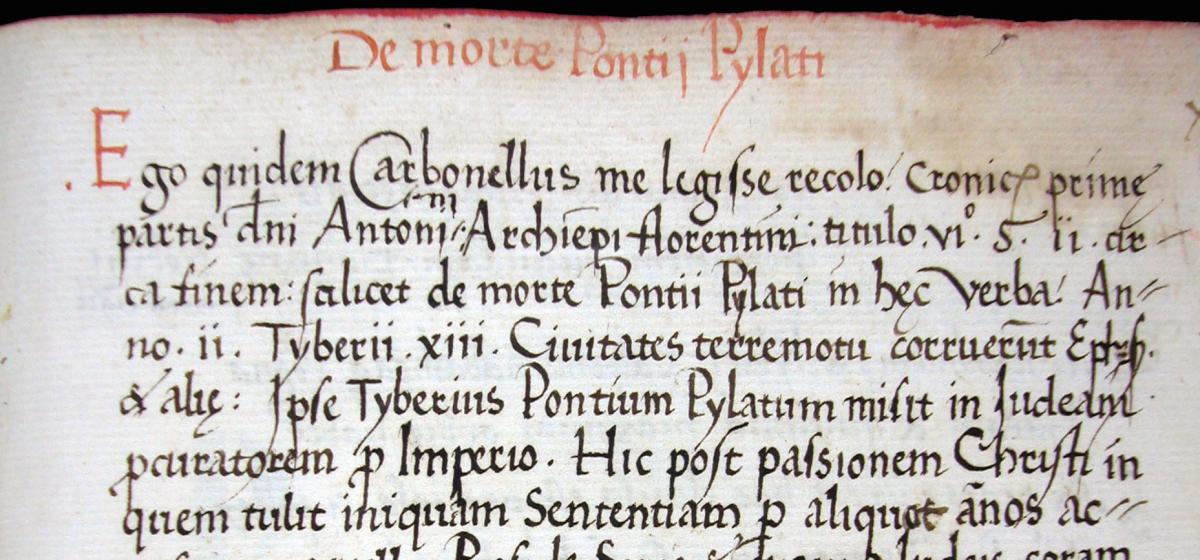 De morte Pontij Pylati
Ego quidem Carbonellus me legisse recolo: Cronicꝝ prime
partis dn̄i Antonini Archiepi florentini: titulo .vi°. §. ii. cir-
ca finem: scilicet de morte Pontii Pylati in hęc verba: An-
no. ii. Tyberii .xiii. Ciuitates terremotu corruerūt
& alię: Ipse Tyberius Pontium Pylatum misit in Iudeam
ꝓcuratorem ꝓ Imperio. Hic post passionem Christi in
quem tulit iniquam Sententiam ꝑ aliquot ān̄os ac-